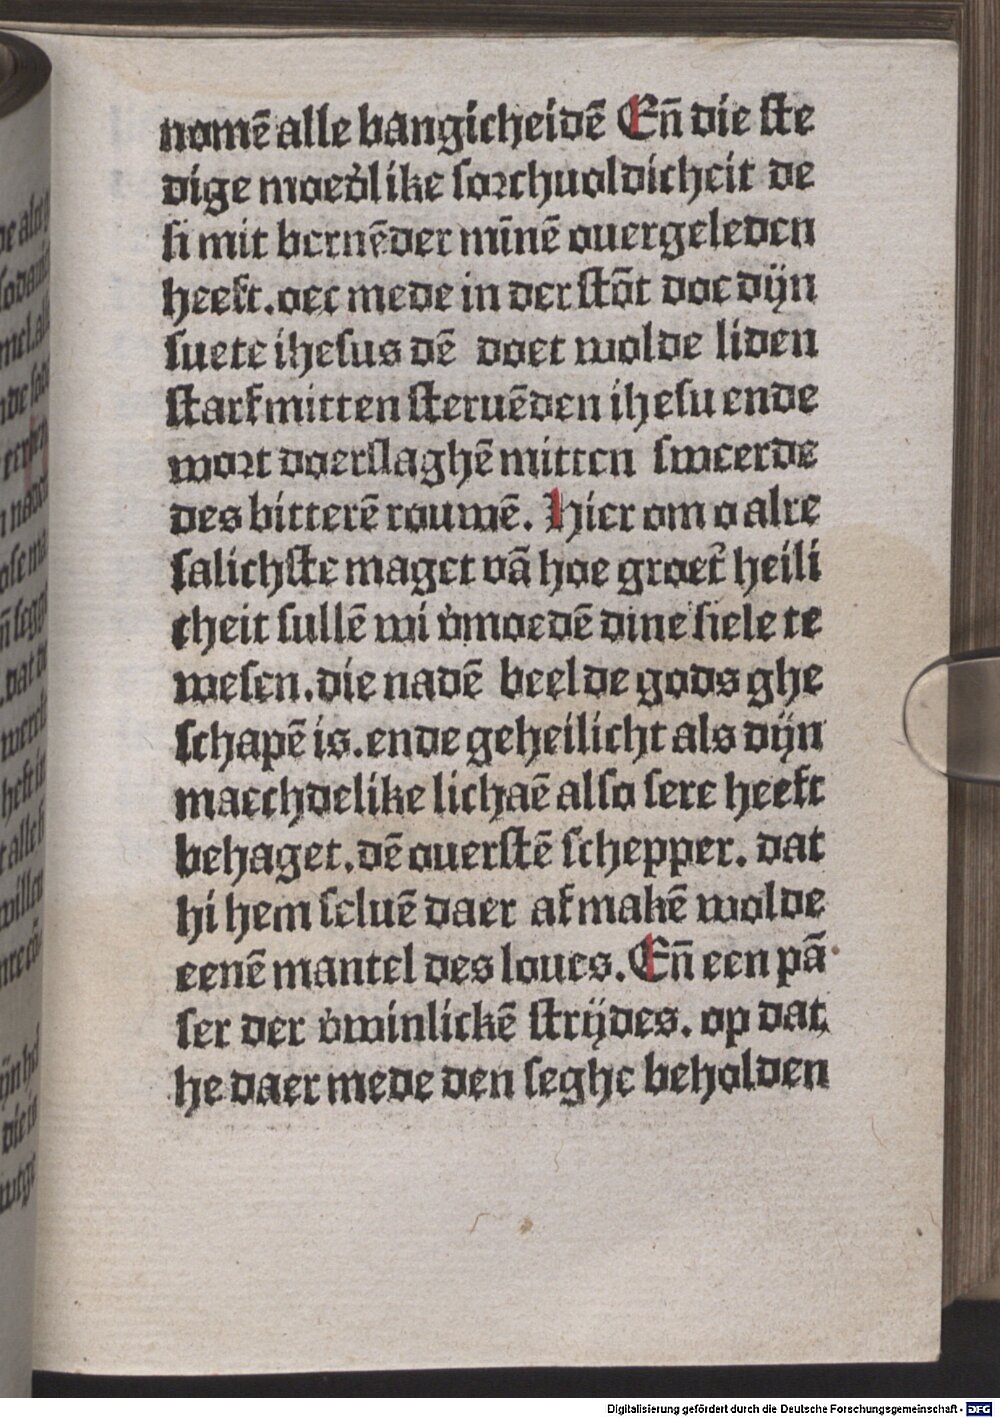 nomē alle bangicheidē Eñ die ste
dige moed̓like sorchuoldicheit de
si mit bernēder mīnē ouergeleden
heeft. oec mede in der stōt doe dijn
suete ihesus dē doet wolde liden
starf mitten steruēden ihesu ende
wort doerslaghē mitten sweerde
des bitterē rouwē. Hier om o alre
salichste maget vā hoe groet̓ heili
cheit sullē wi v̓moedē dine siele te
wesen. die nadē beelde gods ghe
schapē is. ende geheilicht als dijn
maechdelike lichaē also sere heeft
behaget. dē ouerstē schepper. dat
hi hem seluē daer af makē wolde
eenē mantel des loues. Eñ een pā
ser der v̓winlickē strijdes. op dat
he daer mede den seghe beholden
Digitalisierung gefördert durch die Deutsche Forschungsgemeinschaft - DFG